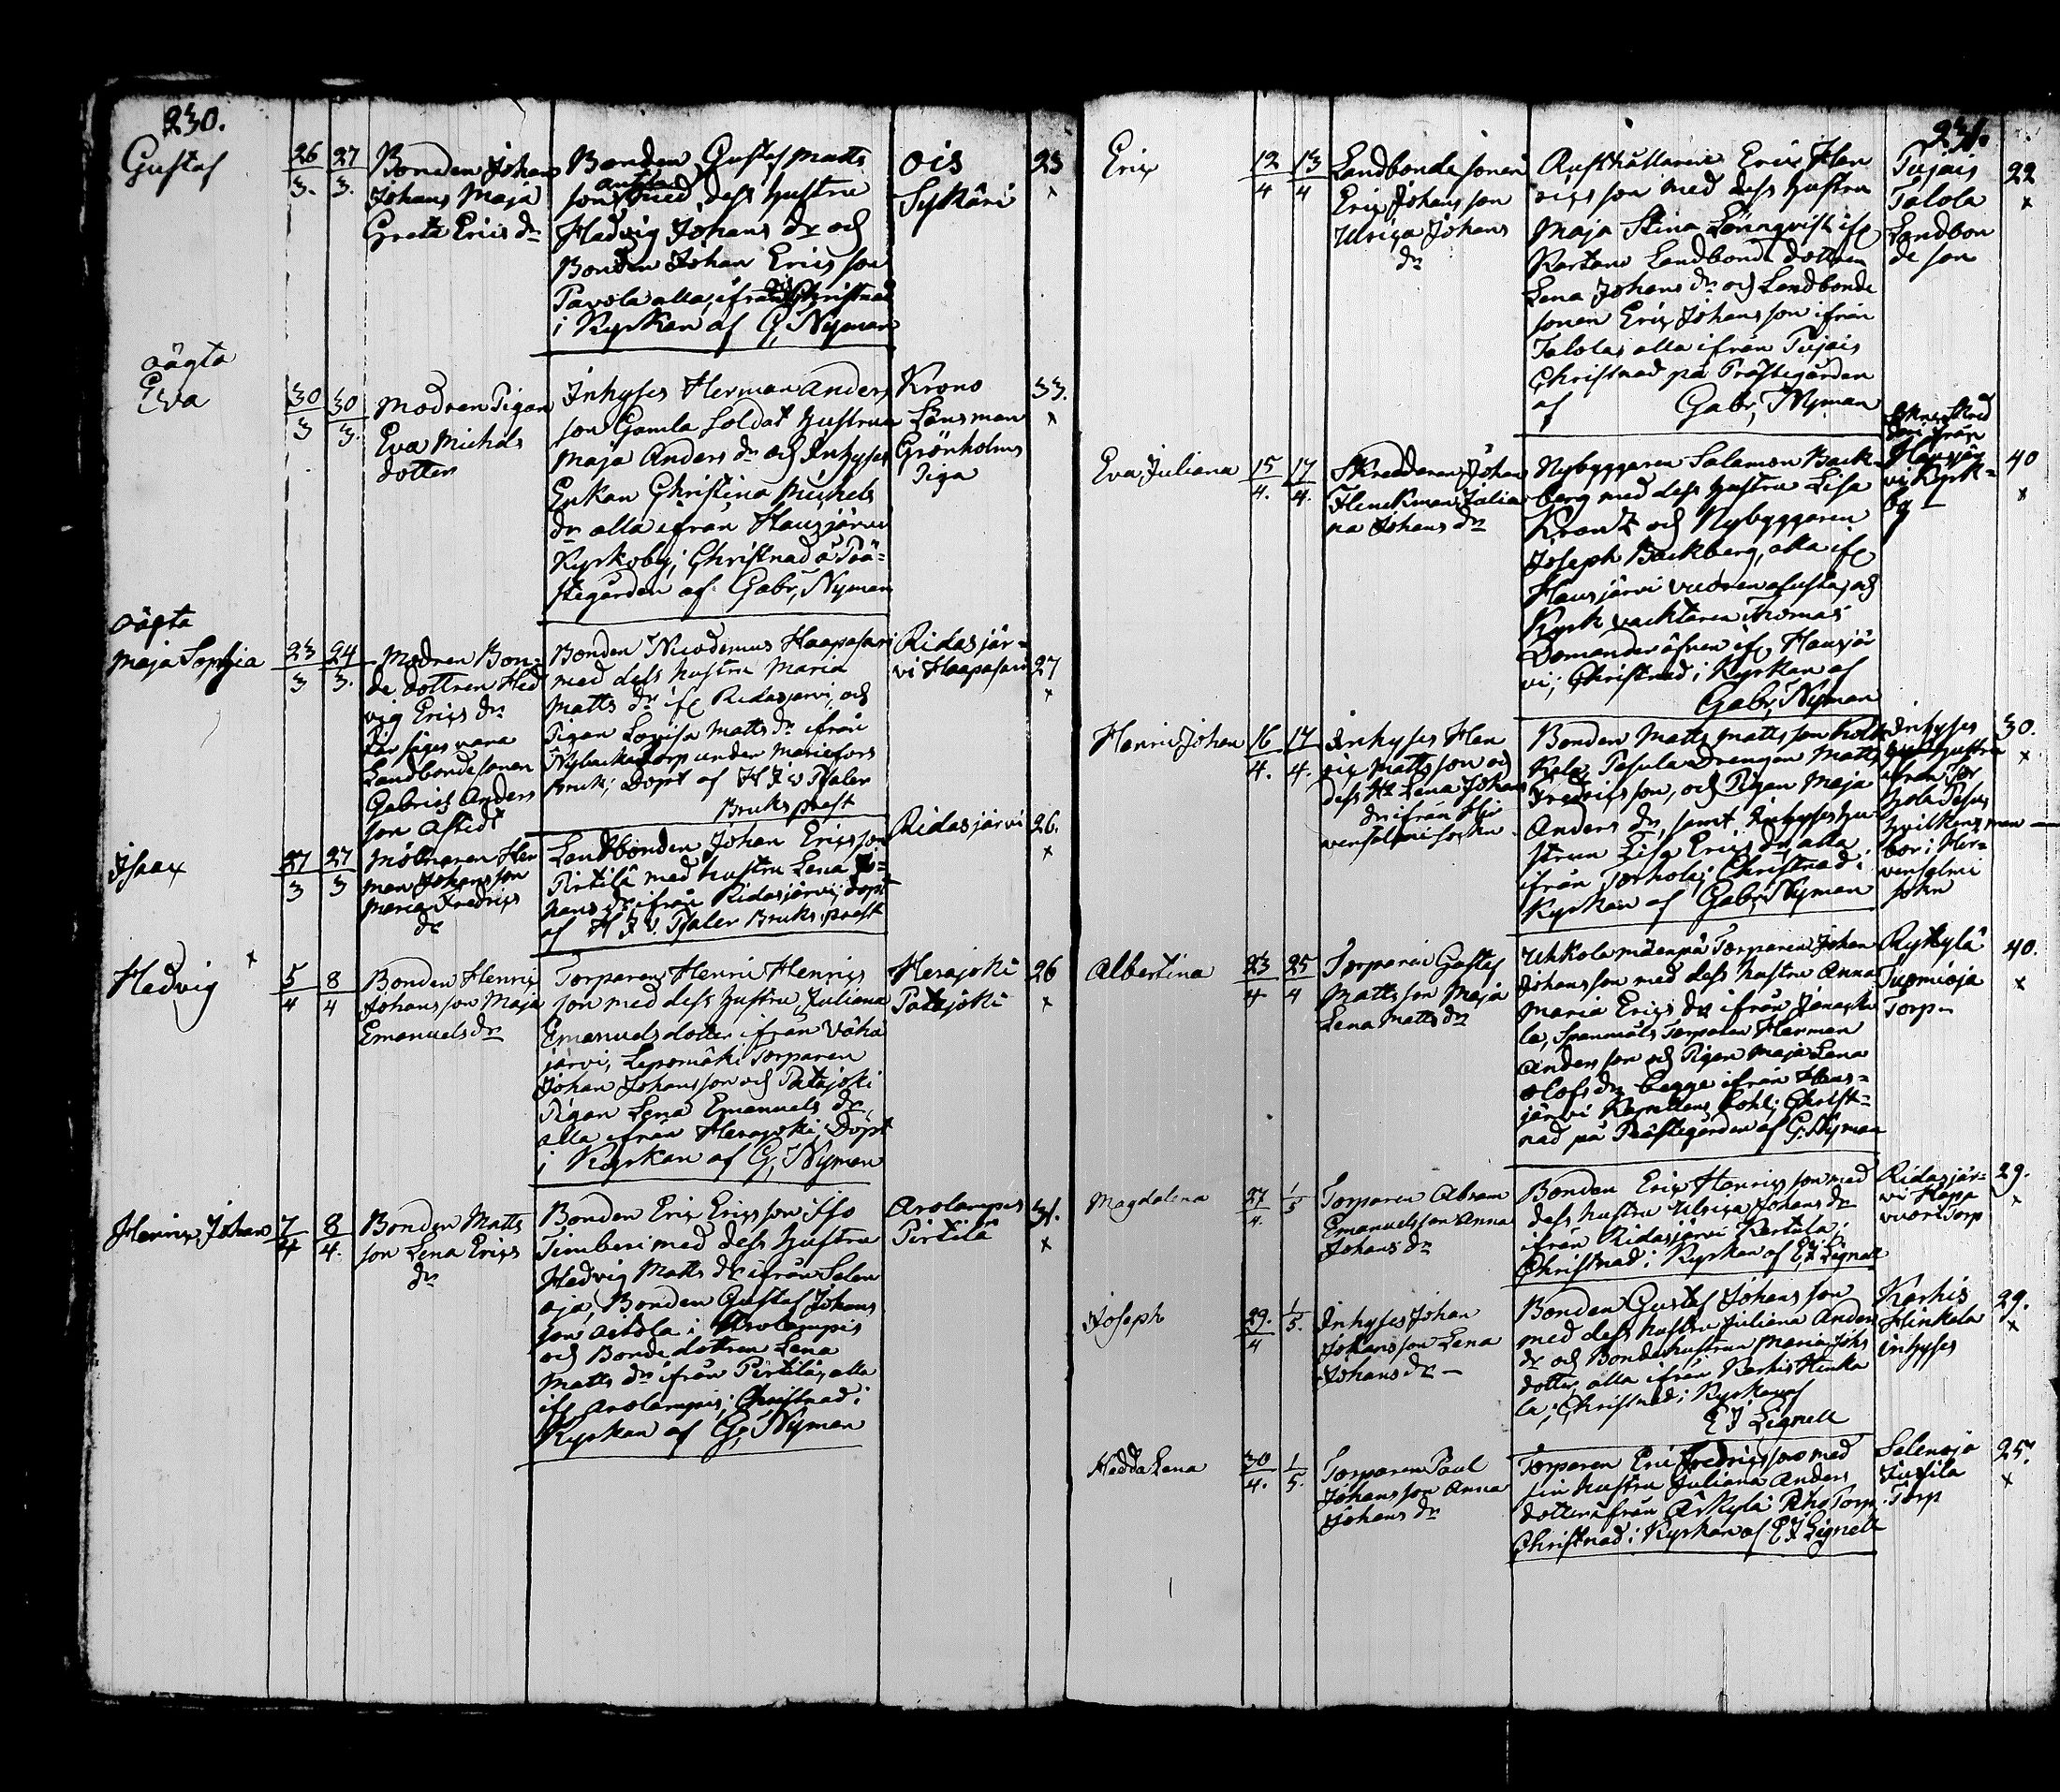 230.
Gustaf
26/3. 27/3.
Bonden Johan
Johans Maja
Greta Erics dr
Bonden Gustaf Matts
son med dess hustru
Hedvig Johans dr och
Bonden Johan Erics son
Pavola alla ifrån Christnad
i Kyrkan af G, Nyman
Ois
Sykäri
23
x
oägta
Eva
30/3 30/3.
Modren Pigan
Eva Michels
dotter
Inhyses Herman Anders
son Gamla Soldat hustrun
Maja Anders dr och Inhyses
Enkan Christina Michels
dr alla ifrån Hausjärvi
Kyrkoby; Christnad å Prä-
stegården af Gabr, Nyman
Krono
Länsman
Grönholms
Piga
33.
x
oägta
Maja Sophia
23/3 24/3.
Modren Bon-
de dottren Hed
vig Erics dr
Far säges vara
Landbondesonen
Gabriel Anders
son
Bonden Nicodemus Haapasari
med dess hustru Maria
Matts dr if Ridasjärvi, och
Pigan Lovisa Matts dr ifrån
Nybacka Torp under Mariefors
Bruk; Döpt af H J v Pfaler
Bruks prest
Ridasjär-
vi Haapasari
27
x
Isaac
27/3 27/3
Mölnaren Her
man Johansson
Maria Fredrics
dr
Landbonden Johan Ericsson
Pirtilä med hustru Lena Jo-
hans dr ifrån Ridasjärvi; döpt
af H J v. Pfaler Bruks prest
Ridasjärvi
26.
x
Hedvig
x
5/4 8/4
Bonden Henric
Johansson Maja
Emanuels dr
Torparen Henric Henrics
son med dess hustru Juliana
Emanuelsdotter ifrån Väha
järvi, Lepomäki Torparen
Johan Johansson och Patajoki
Pigan Lena Emanuels dr,
alla ifrån Herajoki; Döpt
i Kyrkan af G, Nyman
Herajoki
Patajoki
26
x
Henric Johan
7/4 8/4.
Bonden Matts
son Lena Erics
dr
Bonden Eric Ericsson Iso
Timberi med dess hustru
Hedvig Matts dr ifrån Selen
oja, Bonden Gustaf Johans
son Aitola i Arolampis
och Bonde dottren Lena
Matts dr ifrån Pirtilä, alla
if Arolampis; Christnad i
Kyrkan af G, Nyman
Arolampis
Pirtilä
31.
x
231.
Eric
12/4 13/4
Landbonde sonen
Eric Johansson
Ulrica Johans
dr
Rusthållaren Eric Hen
ricsson med dess hustru
Maja Stina Lönnqvist if
Kartano Landbonde dottren
Lena Johans dr och Landbonde
sonen Eric Johansson ifrån
Talolas alla ifrån Pujais
Christnad på Prästegården
af Gabr, Nyman
Pujais
Talola
Landbon
de son
22
x
Eva Juliana
15/4. 17/4.
Skreddaren Johan
Flinckman Julia
na Johans dr
Nybyggaren Salamon Back-
berg med dess hustru Lisa
Krantz och Nybyggaren
Joseph Backberg, alla if
Hausjärvi och
Kyrk vacktaren Thomas
Domander äfven if Hausjär
vi; Christnad i Kyrkan af
Gabr, Nyman
Hausjär
vi Kyrk-
by
40
x
Henric Johan
16/4. 17/4.
Inhyses Hen
ric Mattsson och
dess H. Lena Johans
dr ifrån Hir
vensalmi Sockn
Bonden Matts Mattsson
Pasula Drengen Matts
Fredricsson, och Pigan Maja
Anders dr, samt Inhyses hu-
strun Lisa Erics dr, alla
ifrån Torhola; Christnad i
Kyrkan af Gabr, Nyman
Inhyses
hustru
ifrån Tor
hola Pasu
hvilkens man
bor i Hir-
vensalmi
sokn
30.
x
Albertina
23/4 25/4
Torparen Gustaf
Mattsson Maja
Lena Matts dr
Uhkola mäenpä Torparen Johan
Johansson med dess hustru Anna
Maria Erics dr ifrån Janacka
la, Torparen Herman
Andersson och Pigan Maja Lena
Olofs dr begge ifrån Haus-
järvi Christ-
nad på Prästegården af G. Nyman
Ryttylä
Tuomioja
Torp
40.
x
Magdalena
27/4. 1/5
Torparen Abram
Emanuelsson Anna
Johans dr
Bonden Eric Henricsson med
dess hustru Ulrica Johans dr
ifrån Ridasjärvi Kertula;
Christnad i Kyrkan af E J Lignell
Ridasjär-
vi Hapa
vuori Torp
29.
x
Joseph
29./4 1/5.
Inhyses Johan
Johansson Lena
Johans dr
Bonden Gustaf Johansson
med dess hustru Juliana Anders
dr och Bondehustrun Maria Johs
dotter, alla ifrån Karhis Hinka
la; Christnad i Kyrkan af
E J Lignell
Karhis
Hinkala
inhyses
29.
x
Hedda Lena
30/4. 1/5.
Torparen Paul
Johansson Anna
Johans dr
Torparen Eric Fredricsson med
sin hustru Juliana Anders
dotter ifrån Torp
Christnad i Kyrkan af E J Lignell
Selenoja
Jussila
Torp
25.
x